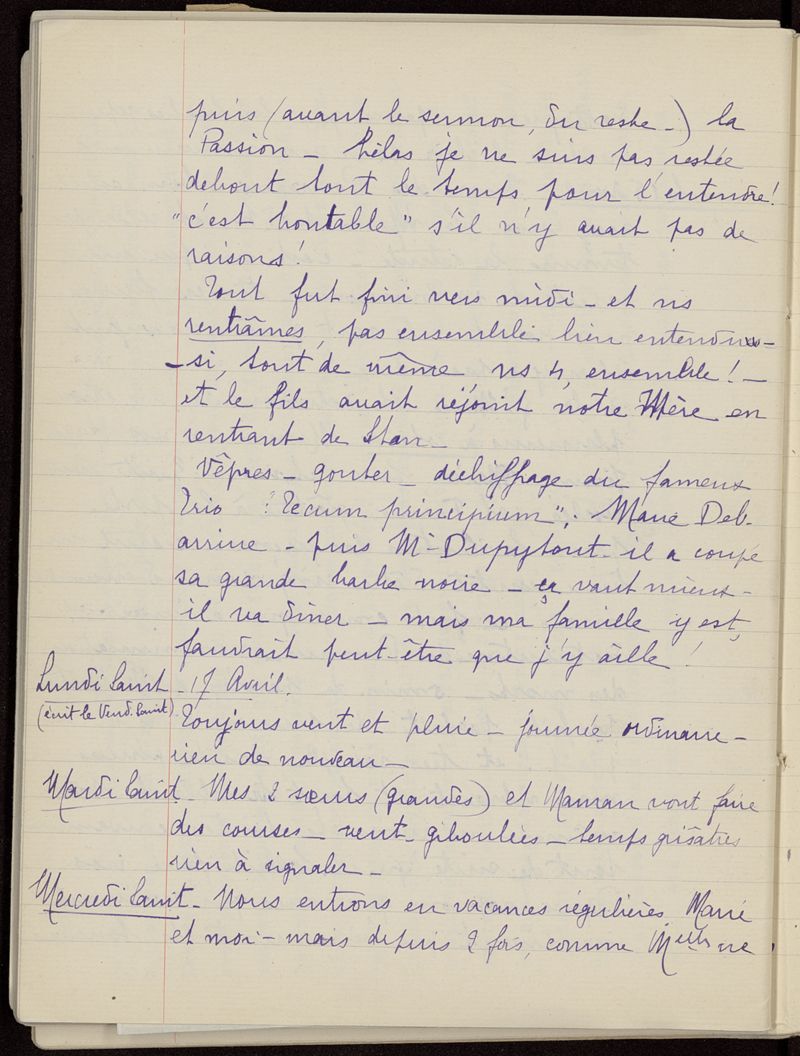 puis (avant le sermon, du reste -) la
Passion - hélas je ne suis pas restée
debout tout le temps pour l'entendre!
"c'est hontable" s'il n'y avait pas de
raisons!
Tout fut fini vers midi - et ns
rentrâmes, pas ensemble bien entendu -
- si, tout de même ns 4, ensemble! -
et le fils avait rejoint notre Mère en
rentrant de Stan -
Vêpres - gouter - déchiffage du fameux
Trio : "Tecum principium"; Marie Deb.
arrive - puis Mr Dupytout - il a coupé
sa grande barbe noire - ça vaut mieux -
il va dîner - mais ma famille y est,
faudrait peut-être que j'y aille!
Lundi Saint - 17 Avril.
(écrit le Vend. Saint)
Toujours vent et pluie - journée ordinaire -
rien de nouveau -
Mardi Saint - Mes 2 sœurs (grandes) et Maman vont faire
des courses - vent - giboulées - temps grisâtre
rien à signaler -
Mercredi Saint - Nous entrons en vacances régulières, Marie
et moi - mais depuis 2 fois, comme Melle ne